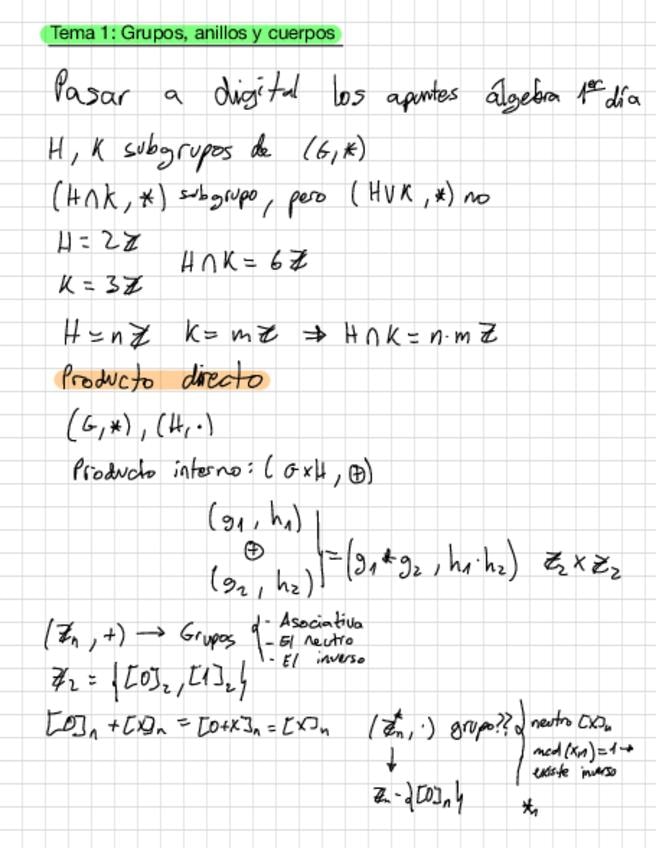 Tema 1: Grupos, anillos y cuerpos
Pasar a digital los apuntes álgebra 1er día
H, K subgrupos de (G,*)
(H∩K, *) subgrupo, pero (H∪K, *) no
H = 2ℤ
H∩K = 6ℤ
K = 3ℤ
H = nℤ K = mℤ ⇒ H∩K = n·m ℤ
Producto directo
(G,*), (H,·)
Producto interno: (G×H, ⊕)
(g1, h1)
⊕
(g2, h2)
= (g1*g2, h1·h2) ℤ2 × ℤ2
(ℤn, +) → Grupos
- Asociativa
- El neutro
- El inverso
ℤ2 = {[0]2, [1]2}
[0]n + [x]n = [0+x]n = [x]n
(ℤn*, ·) grupo??
neutro [x]n
mcd(x,n)=1→
existe inverso
↓
ℤn - {[0]n}